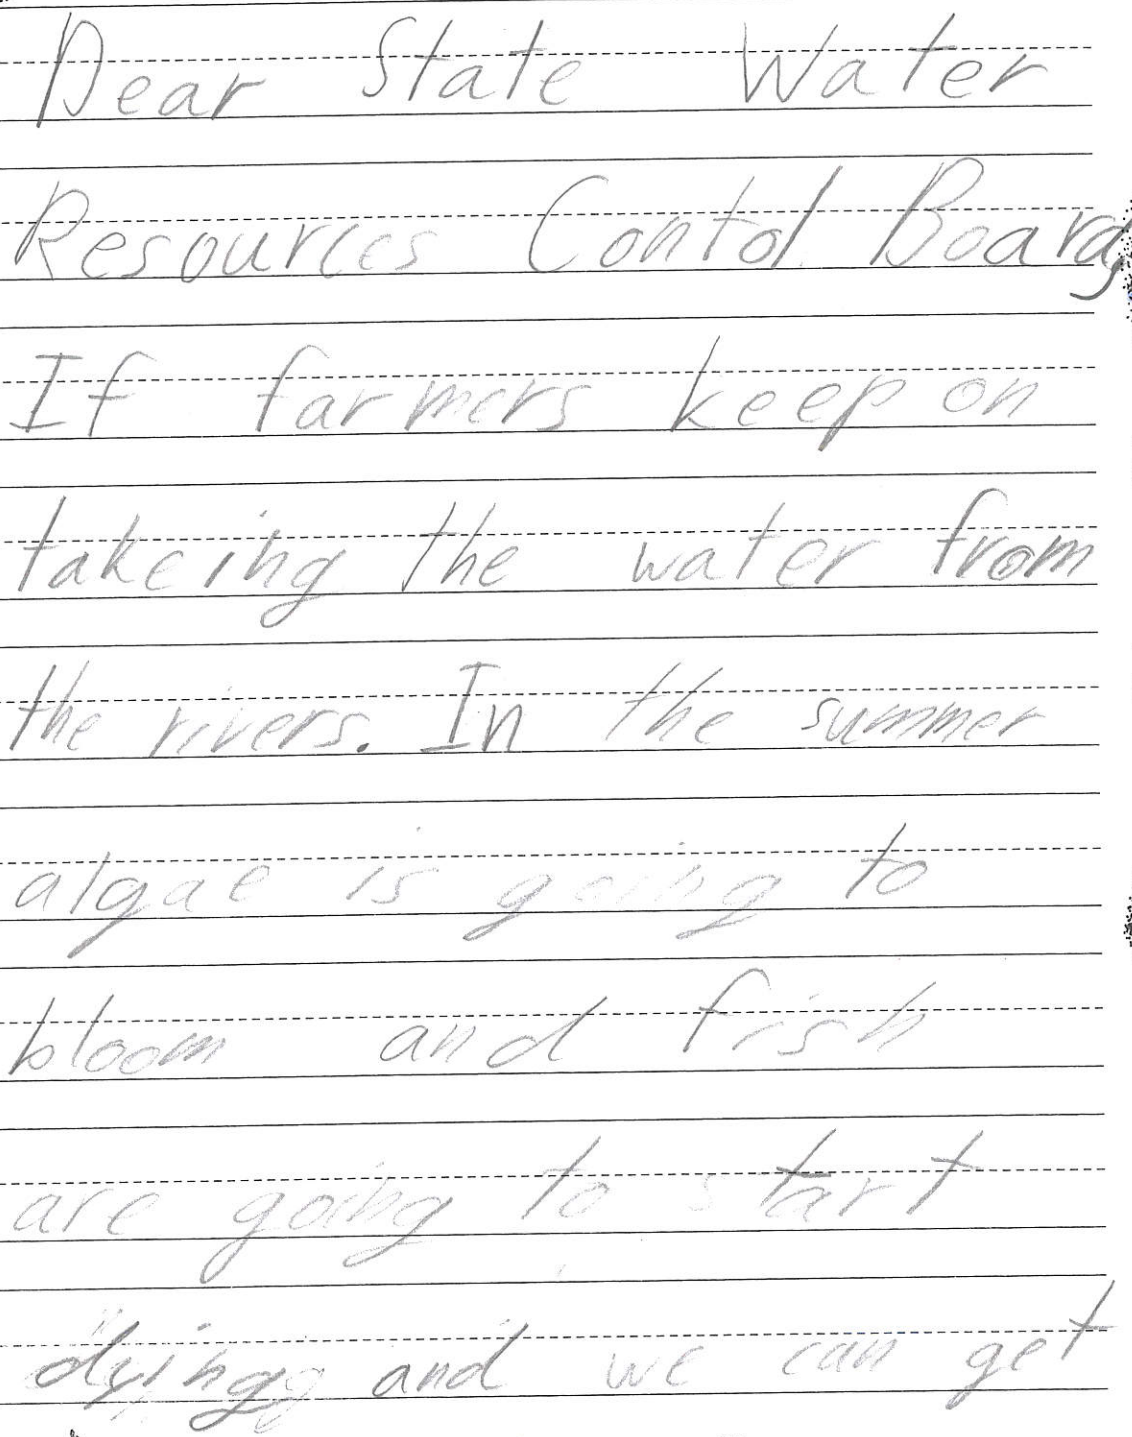 Dear State Water
Resources Contol Board,
If farmers keep on
takeing the water from
the rivers. In the summer
algae is going to
bloom and fish
are going to start
dying and we can get